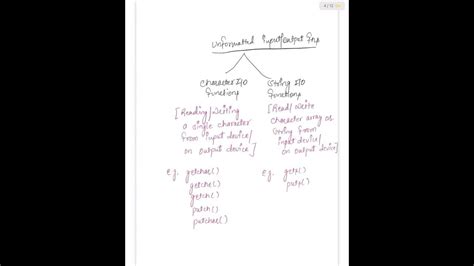 4/11
Unformatted Input/Output fns
Character I/O
functions
[Reading/Writing
a single character
from input device/
on output device]
E.g. getchar()
getche()
getch()
putch()
putchar()
String I/O
functions
[Read/Write
character array or
string from
input device/
on output device]
E.g. gets()
puts()